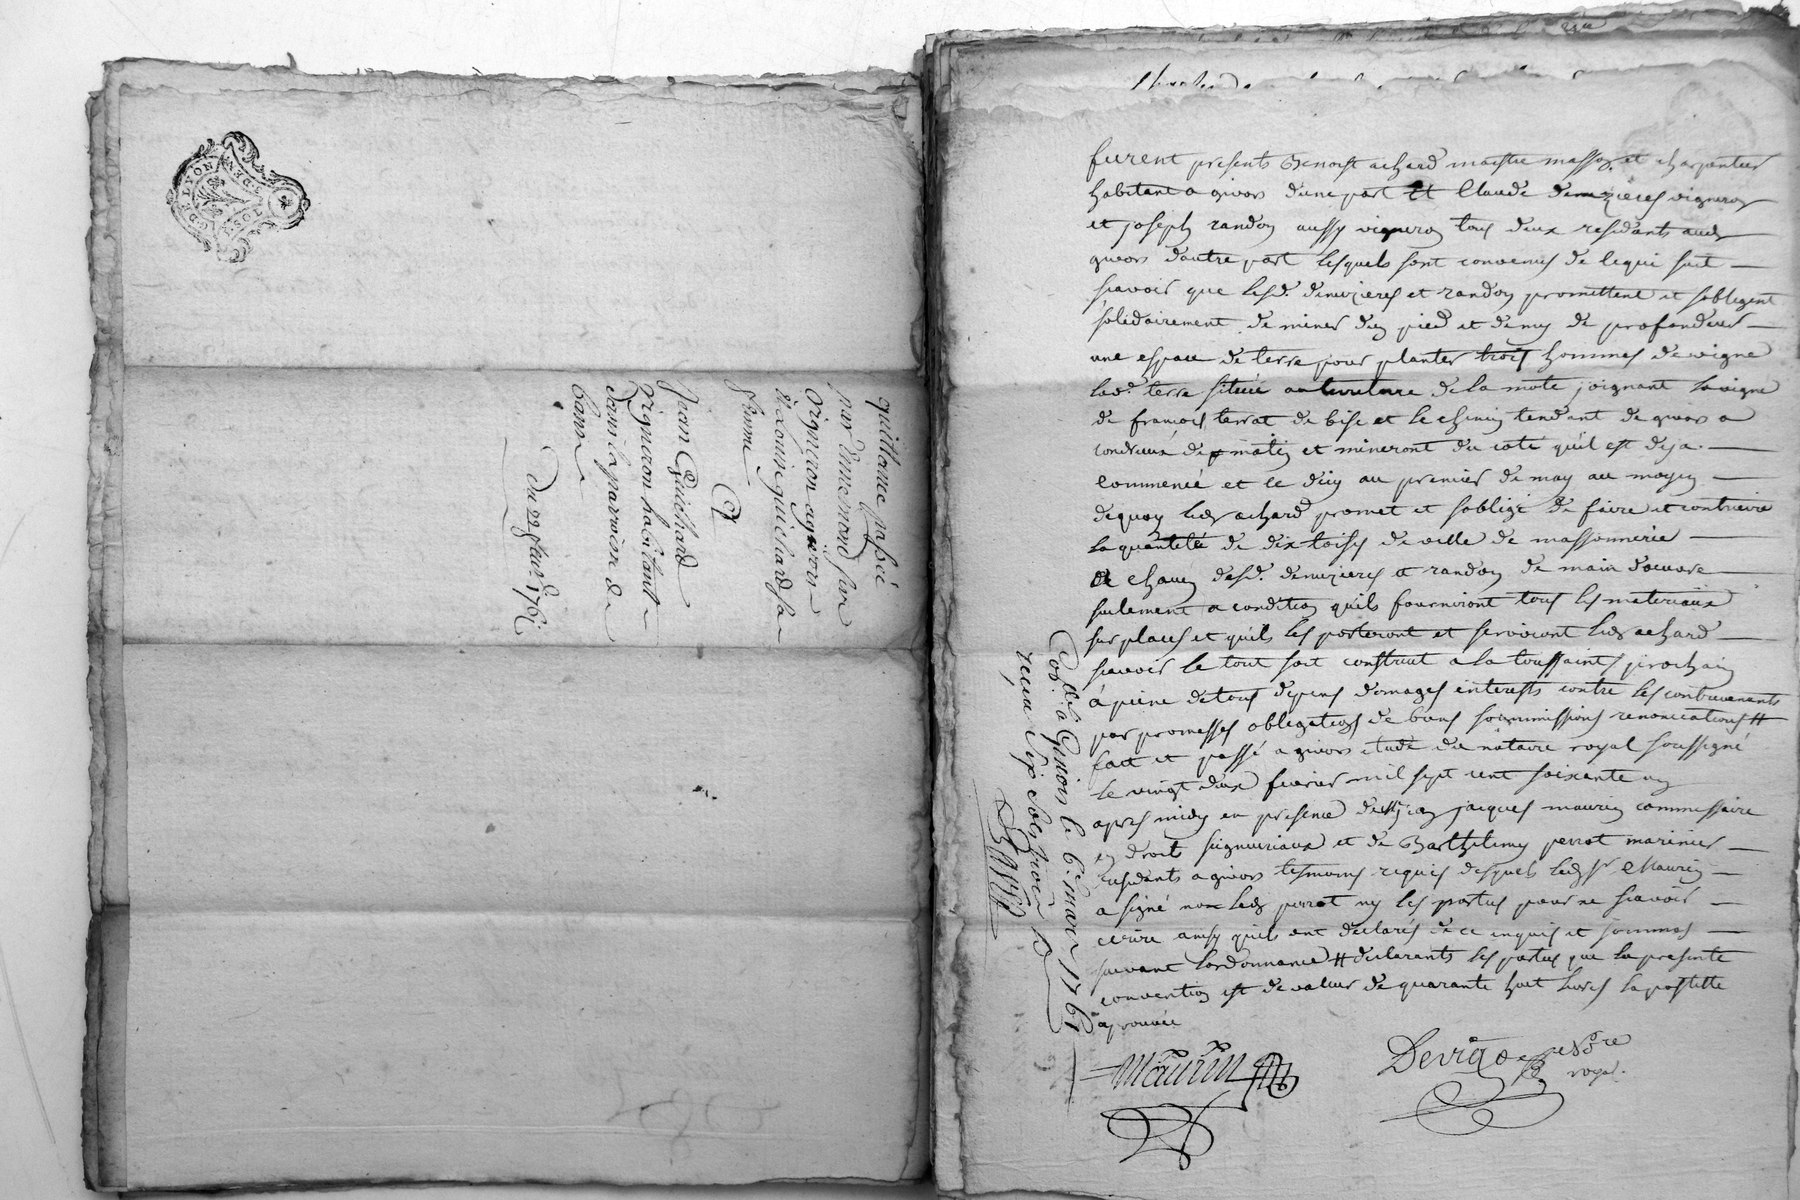 G. DE LYON
2. DEN
quittance passée
par Ennemond
vigneron a givors
et Louise guichard sa
femme
A
Jean Guichard
vigneron habitant
dans la parroisse de
Bans
Du 22 fevr. 1761
furent presents Benoist achard maistre masson et charpentier
habitant a givors d'une part et Claude demezieres vigneron
et joseph randon aussy vigneron tous deux residants aud.
givors d'autre part lesquels sont convenus de ce qui suit
scavoir que lesd. demezieres et randon promettent et sobligent
solidairement de miner d'un pied et demy de profondeur
une espace de terre pour planter trois hommes de vigne
lad. terre située au territoire de la mote joignant la vigne
de francois terrat de bise et le chemin tendant de givors a
condrieux de matin et mineront du coté qu'il est deja
commencé et ce d'icy au premier de may au moyen
dequoy led. achard promet et soblige de faire et construire
la quantité de dix toises de ville de massonnerie
a chacun desd. demezieres et randon de main d'oeuvre
seulement a condition qu'ils fourniront tous les materiaux
sur places et qu'ils les porteront et serviront led. achard
scavoir le tout soit construit a la toussaints prochain
à peine de tous depens domages interests contre les contrevenants
par promesses obligations de biens soummissions renonciations #
fait et passé a givors etude du notaire royal soussigné
le vingt deux fevrier mil sept cent soixante un
apres midy en presence de jacques maurin commissaire
en droits seigneuriaux et de Barthelemy perrot marinier
residants a givors tesmoins requis desquels led. sr Maurin
a signé non led. perrot ny les parties pour ne scavoir
ecrire ainsy qu'ils ont declarés de ce enquis et sommés
suivant lordonnance # declarants les parties que la presente
convention est de valeur de quarante huit livres la postille
aprouvée
Maurin
Devigo
nore
royal.
a Givors le 6e. mars 1761
reçu six sols